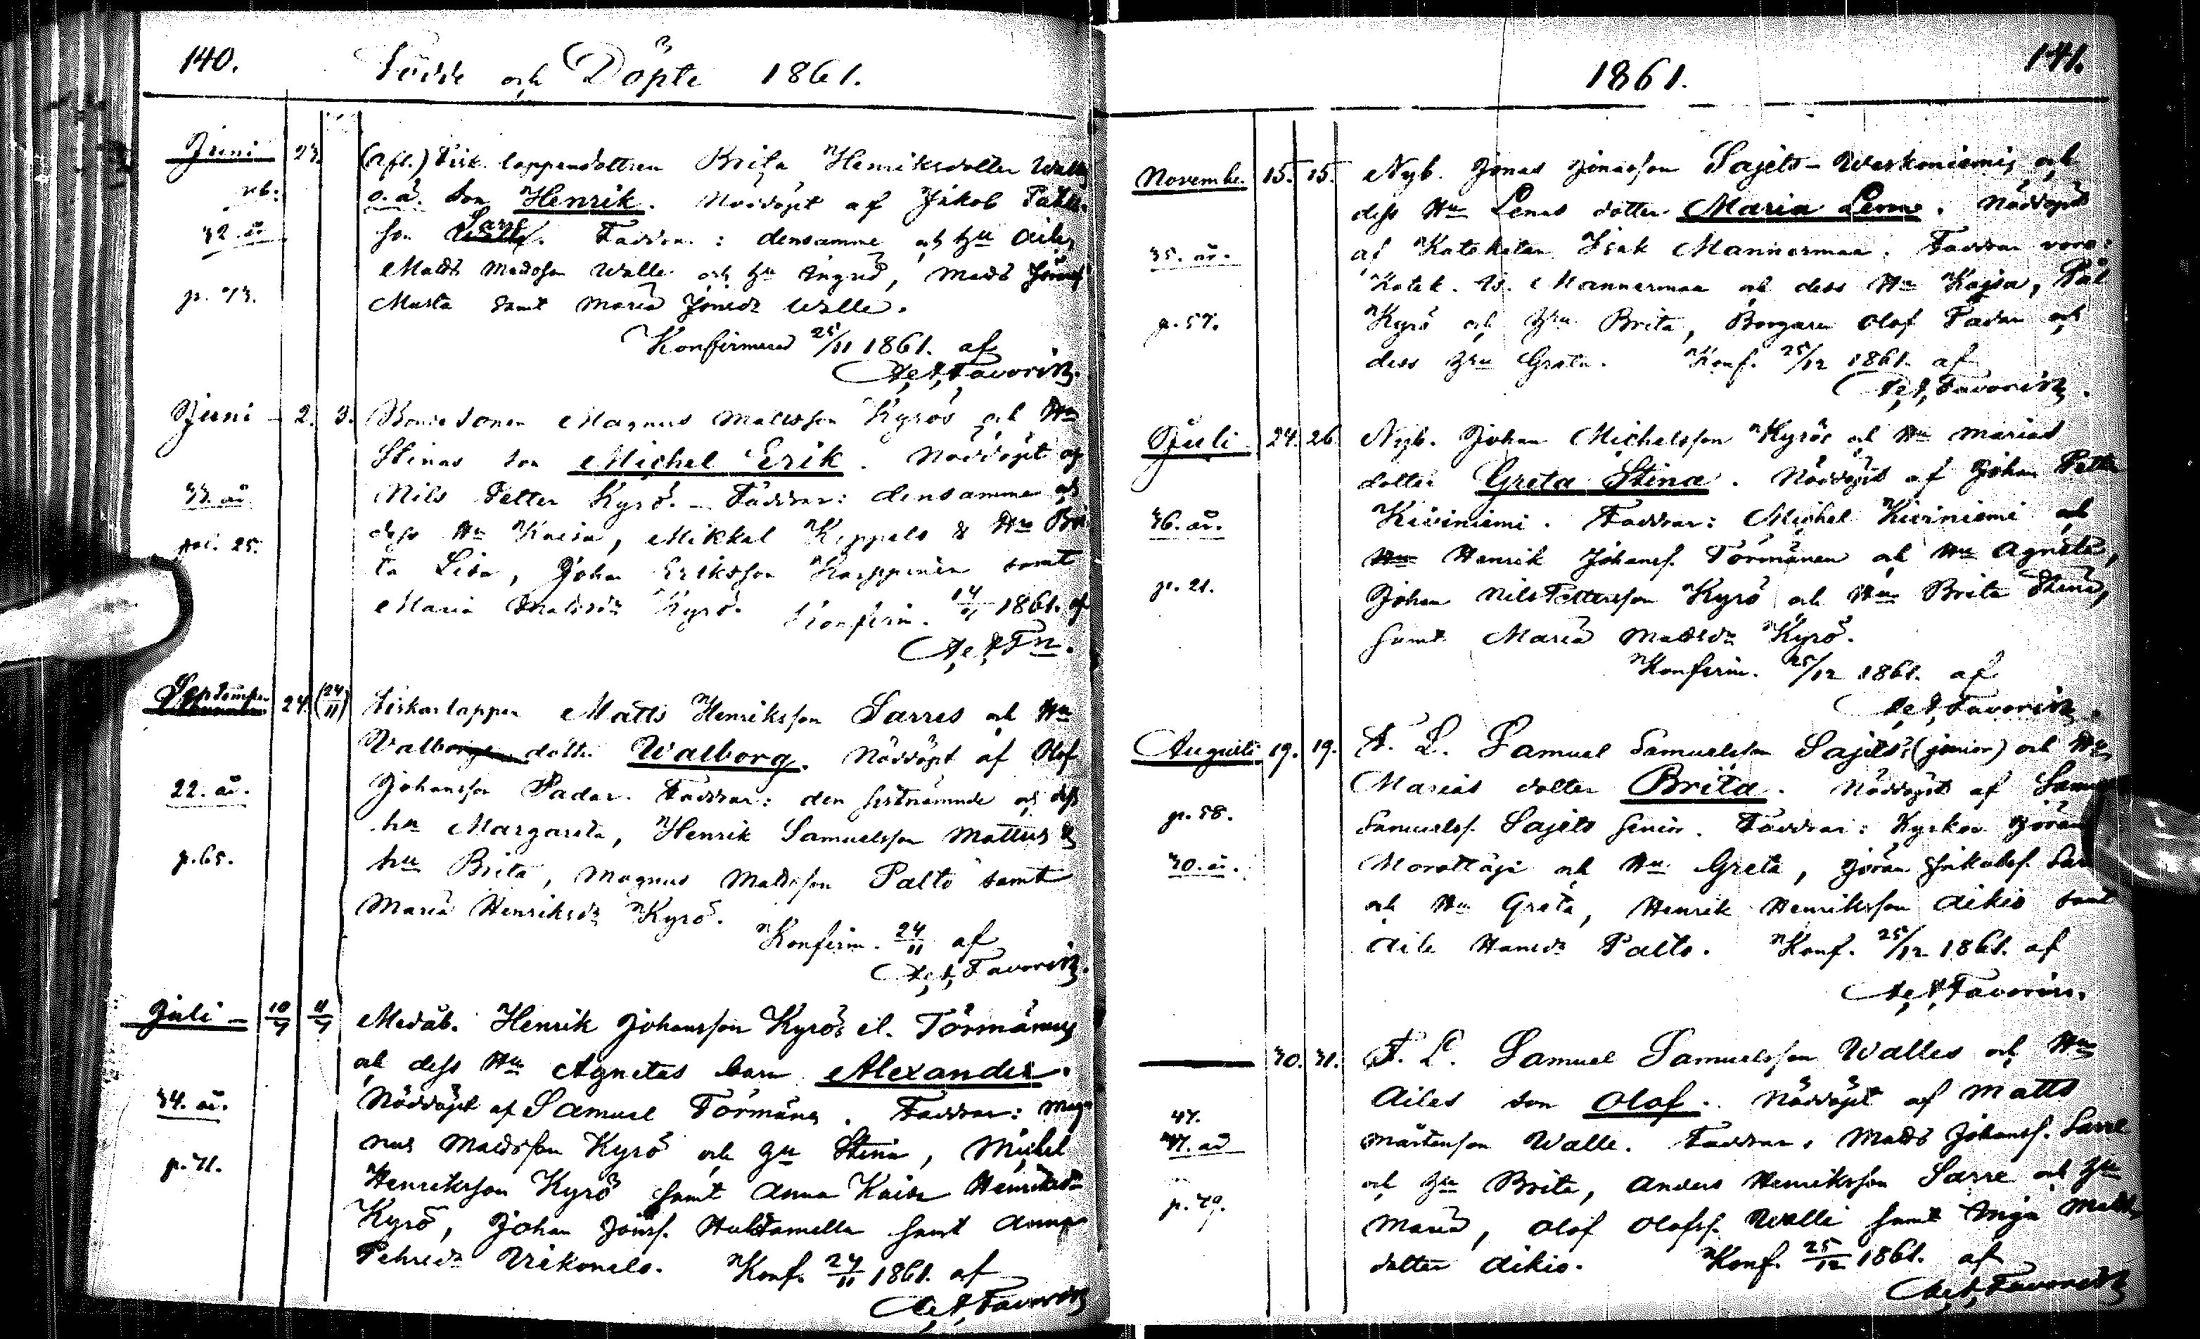 140.
Födde och Döpte 1861.
Juni
23.
(afl.) Fisk. lappendottren Brita Henriksdotter
o. ä. son Henrik. Nöddöpt af Jakob
son Faddrar: densamme och hu Aile,
32. år
Matts Madsson Walle och hu Ingrid, Mads
p. 73.
Musta samt Maria Jönsdr Walle.
Konfirmerad 25/11 1861. af
A. A. Favorin.
Juni - 2. 3. Bonde sonen Magnus Mattsson Kyrös och Hu
Stinas son Michel Erik. Nöddöpt af
33. år
Nils Petter Kyrö. - Faddrar: densamme och
dess Hu Kaisa, Mikkel Keppals & Hu Bri
25.
ta Lisa, Johan Eriksson Karppinen samt
Maria Kyrö. Konfirm. 1861. af
A. A. Fn.
September 24. (24/11) Fiskarlappen Matts Henriksson Sarres och Hu
dotter Walborg. Nöddöpt af Olof
22. år.
Johansson Padar. Faddrar: den sistnämnde och dess
hu Margareta, Henrik Samuelsson Mattus &
p. 65.
hu Brita, Magnus Madsson Palto samt
Maria Henriksdr Kyrö.
Konfirm. 24/11 af
A. A. Favorin.
Juli - 10/7 11/7 Henrik Johansson Kyrös el. Törmänens
och dess Hu Agnetas barn Alexander.
34. år.
Nöddöpt af Samuel Törmäne. Faddrar: Mag-
nus Madsson Kyrö och Hu Stina, Michel
p. 71.
Henriksson Kyrö samt Anna Kaisa Henriksdr
Kyrö, Johan samt Anna
Pehrsdr Konf. 24/11 1861. af
A. A. Favorin
1861.
141.
November 15. 15. Nyb. Jonas Jonasson Sajets - Waskoniemis och
dess Hu Lenas dotter Maria Lena. Nöddöpt
35. år.
af Kateketen Isak Mannermaa. Faddrar voro:
Katek. Is. Mannermaa och dess Hu Kajsa, Pål
p. 57.
Kyrö och Hu Brita, Borgaren Olof Padar och
dess Hu Greta. Konf. 25/12 1861. af
A. A. Favorin.
Juli 24. 26. Nyb. Johan Michelsson Kyrös och Hu Marias
dotter Greta Stina. Nöddöpt af Johan Petter
36. år.
Kiviniemi. Faddrar: Michel Kiviniemi och
Hu Henrik Johanss. Törmänen och Hu Agneta,
p. 21.
Johan Nils Pettersson Kyrö och Hu Brita Stina,
samt Maria Madsdr Kyrö.
Konfirm. 25/12 1861. af
A. A. Favorin.
Augusti 19. 19. F. L. Samuel Samuelsson Sajets (junior) och Hu
Marias dotter Brita. Nöddöpt af Samuel
p. 58.
Samuelss. Sajets senior. Faddrar: Kyrkov. Jöran
30. år.
Morottaja och Hu Greta, Jöran Jakobss.
och Hu Greta, Henrik Henriksson Aikio samt
Aile Hansdr Palto. Konf. 25/12 1861. af
A. A. Favorin.
30. 31. F. L. Samuel Samuelsson Walles och Hu
Ailas son Olof. Nöddöpt af Matts
47.
47. år
Mårtenson Walle. Faddrar: Matts Johanss. Sarre
och Hu Brita, Anders Henriksson Sarre och Hu
p. 79.
Maria, Olof Olofss. Walle samt Inga Matts
dotter Aikio. Konf. 25/12 1861. af
A. A. Favorin